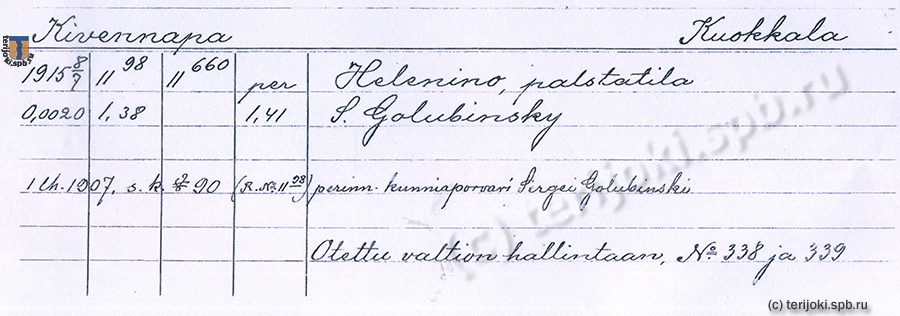 Kivennapa Kuokkala
1915 8/7 11 98 11 660 per Helenino, palstatila
0,0020 1,38 1,41 S. Golubinsky
1 lh. 1907, s. k. 90 (R. No. 11 98) perinn. kunniaporvari Sergei Golubinski.
Otettu valtion hallintaan, No 338 ja 339
(c) terijoki.spb.ru
(c) terijoki.spb.ru